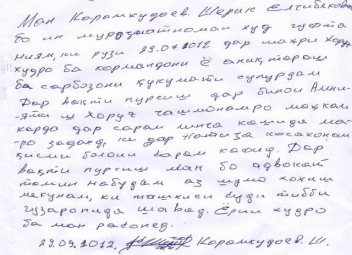 Ман Карамхудоев. Шерик Елчибекович
бо ин муроҷиатномаи худ гуфта
ки рузи 29.07.2012 дар шахри Хоруғ
худро ба кормандони ё аниқтараш
ба сарбозони ҳукумати супурдам
Дар вақти пурсиш дар бинои Амни-
яти ш Хоруғ чашмонамро маҳкам
карда дар сарам чизе кашида ма-
ро заданд, ки дар натиҷа косахонаи
қисми болоии сарам кафид. Дар
вақти пурсиш ман бо адвокат
таъмин набудам аз шумо хоҳиш
мекунам, ки ташхиси суди тибби
гузаронида шавад. Ёрии худро
ба ман расонед.
29.09.2012. Карамхудоев. Ш.